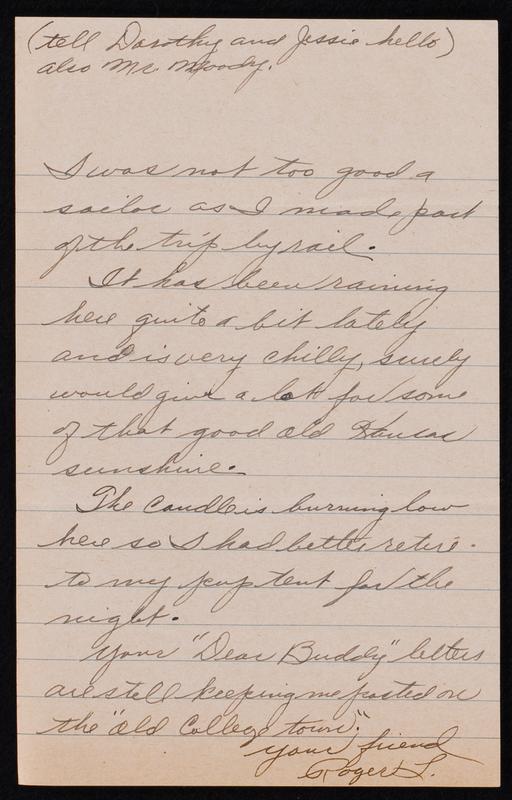 (tell Dorothy and Jessie hello)
also Mr. Moody.
I was not too good a
sailor as I made part
of the trip by rail.
It has been raining
here quite a bit lately
and is very chilly, surely
would give a lot for some
of that good old Kansas
sunshine.
The candle is burning low
here so I had better retire
to my pup tent for the
night.
Your "Dear Buddy" letters
are still keeping me posted on
the "old College town".
Your friend
Roger L.